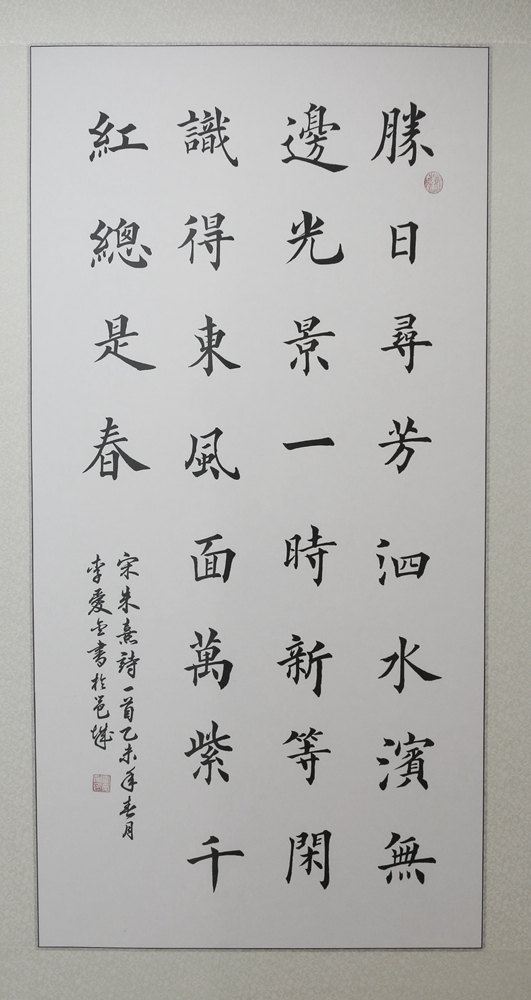 勝日尋芳泗水濱無
邊光景一時新等閑
識得東風面萬紫千
紅總是春
宋朱熹詩一首乙未年春月
李愛金書於邑城